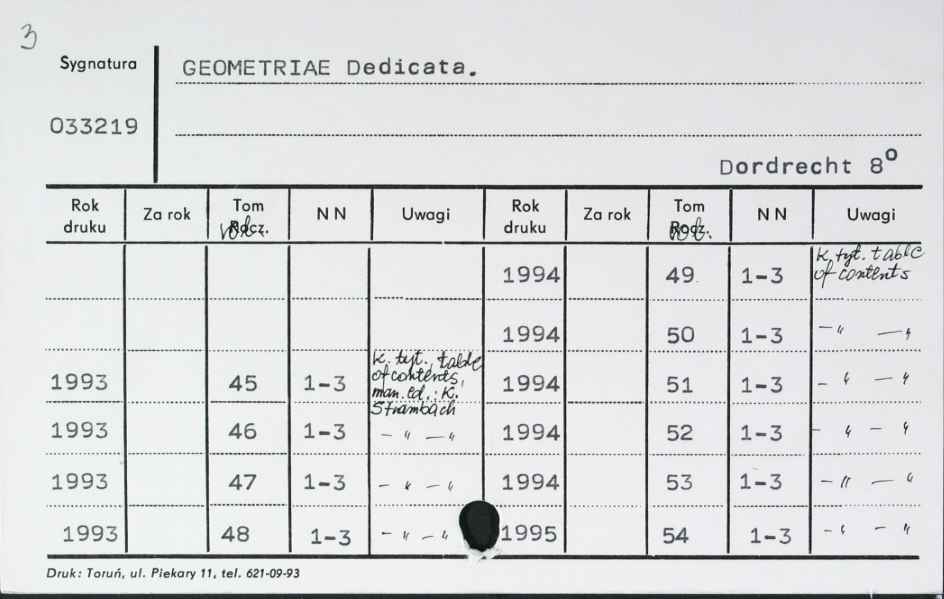 3
Sygnatura
GEOMETRIAE Dedicata.
033219
Dordrecht 8°
Rok druku Za rok Tom Rocz. vol. N N Uwagi Rok druku Za rok Tom Rocz. vol. N N Uwagi
1994 49 1-3 k. tyt. table of contents
1994 50 1-3 — " — "
1993 45 1-3 k. tyt., table of contents, man. ed.: K. Strambach 1994 51 1-3 — " — "
1993 46 1-3 — " — " 1994 52 1-3 — " — "
1993 47 1-3 — " — " 1994 53 1-3 — " — "
1993 48 1-3 — " — " 1995 54 1-3 — " — "
Druk: Toruń, ul. Piekary 11, tel. 621-09-93